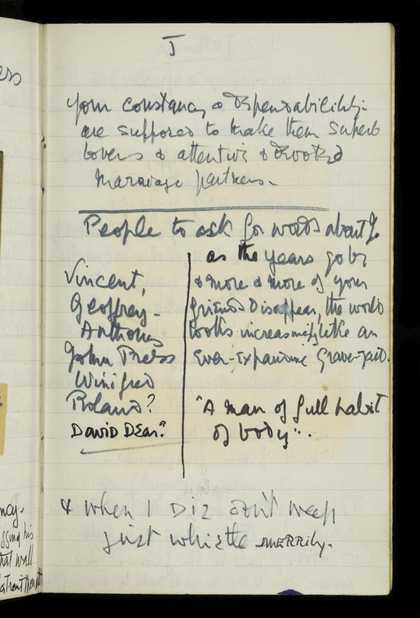 J
your constancy & dependability:
are supposed to make them superb
lovers & attentive & devoted
marriage partners.
People to ask for words about J.
Vincent,
Geoffrey -
Anthony
John Press
Winifred
Roland?
David Dear?
as the years go by
& more & more of your
friends disappear, the world
looks increasingly like an
ever-expansive grave-yard.
"A man of full habit
of body".
& when I Die don't weep
just whistle merrily.
ess
ncy.
gging his
that will